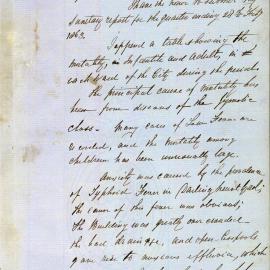 I have the honor to submit my
sanitary report for the quarter ending 14th Feby
1863.
I append a table showing the
mortality, in Infantile and Adults, in
each Ward of the City during the period.
The principal cause of mortality has
been from diseases of the Zymotic
class - Many cases of Low Fever are
recorded, and the mortality among
children has been unusually large.
Anxiety was caused by the prevalence
of Typhoid Fever in Darlinghurst Gaol;
the cause of this fever was obvious;
the Building was greatly over crowded
the bad drainage, and open Cesspools
gave rise to noxious effluvia, which